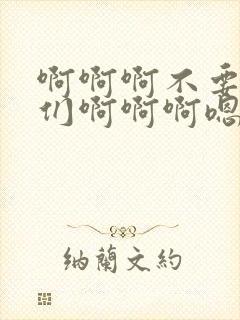 啊啊啊不要
们啊啊啊嗯
纳蘭文約